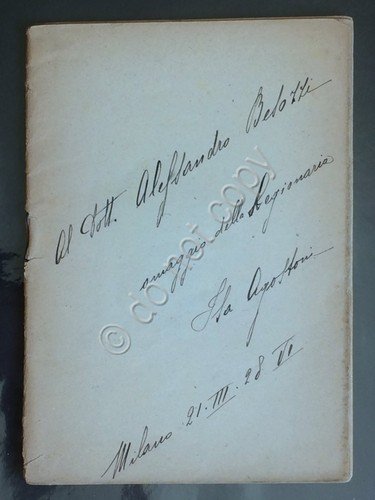 Al Dott. Alessandro Belozzi
omaggio della Legionaria
Isa Agostoni
Milano 21. III. 28 VI
© do not copy